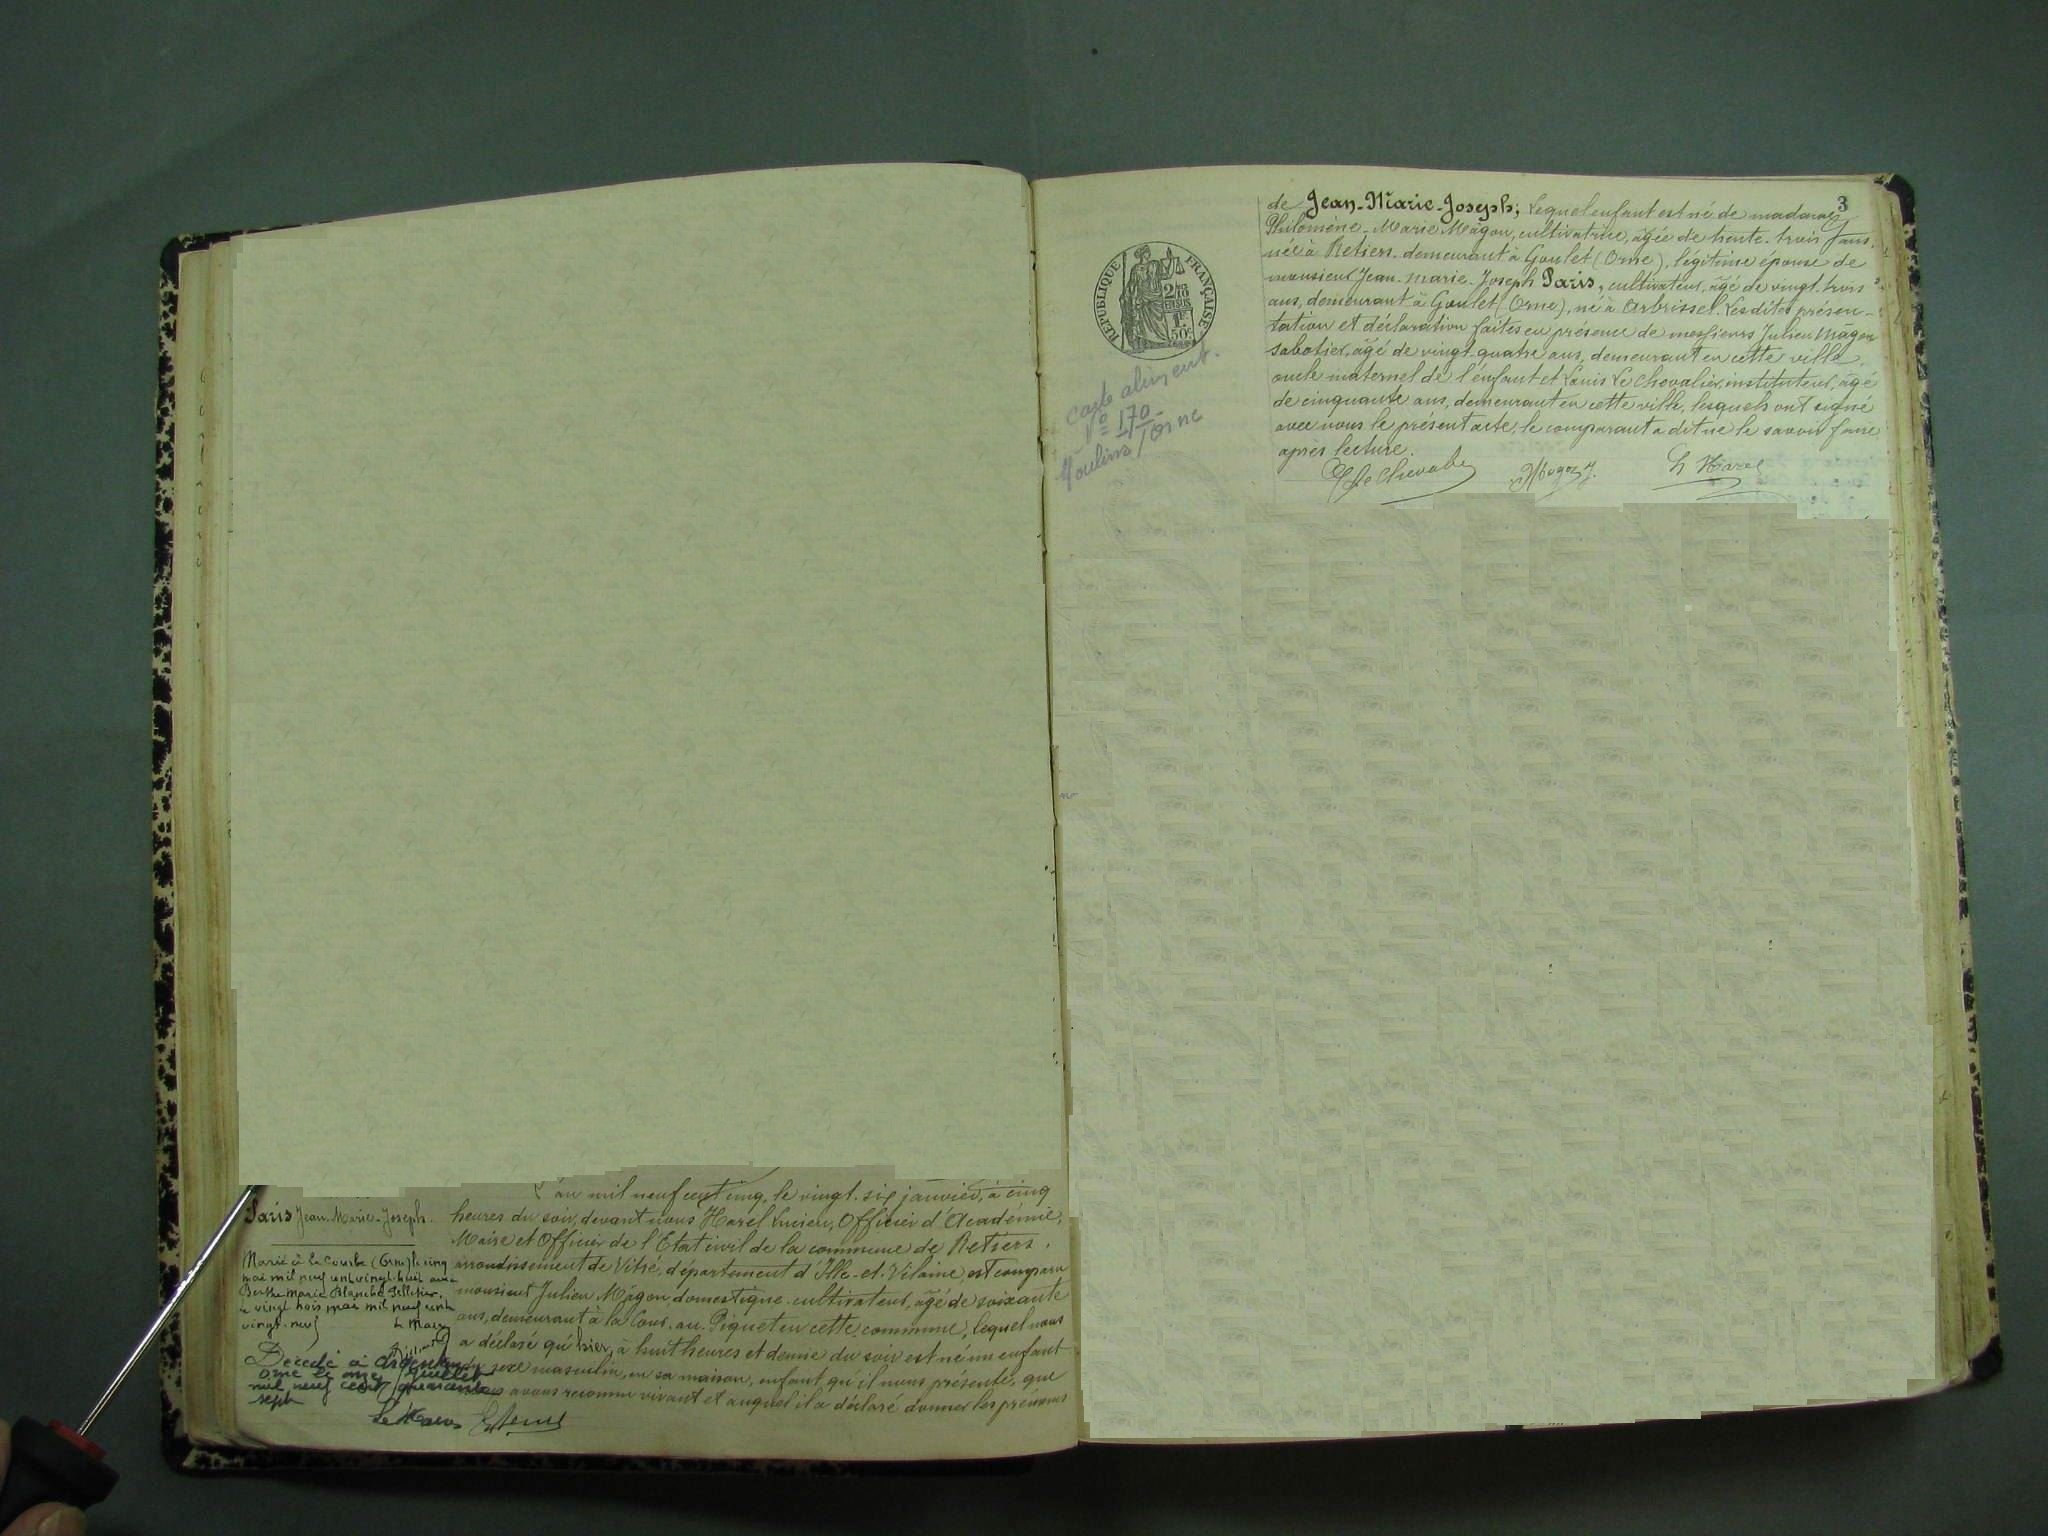 Paris Jean-Marie-Joseph.
Marié à La Courbe (Orne) le cinq
mai mil neuf cent vingt-huit avec
Berthe Marie Blanche Pelletier.
Le vingt trois mai mil neuf cent
vingt-neuf Le Maire
Décédé à Argentan
Orne le onze juillet
mil neuf cent quarante
sept
Le Maire
L'an mil neuf cent cinq, le vingt-six janvier, à cinq
heures du soir, devant nous Harel Lucien, Officier d'Académie,
Maire et Officier de l'Etat civil de la commune de Retiers,
arrondissement de Vitré, département d'Ille-et-Vilaine, est comparu
monsieur Julien Mâgon, domestique-cultivateur, âgé de soixante
ans, demeurant à la Cour-au-Piquet en cette commune, lequel nous
a déclaré qu'hier, à huit heures et demie du soir est né un enfant
du sexe masculin, en sa maison, enfant qu'il nous présente, que
nous avons reconnu vivant et auquel il a déclaré donner les prénoms
3
de Jean-Marie-Joseph; Lequel enfant est né de madame
Philomène-Marie Mâgon, cultivatrice, âgée de trente-trois ans,
née à Retiers, demeurant à Goulet (Orne), légitime épouse de
monsieur Jean-Marie-Joseph Paris, cultivateur, âgé de vingt-trois
ans, demeurant à Goulet (Orne), né à Arbrissel. Lesdites présen-
tation et déclaration faites en présence de messieurs Julien Mâgon
sabotier, âgé de vingt-quatre ans, demeurant en cette ville,
oncle maternel de l'enfant et Louis Le Chevalier, instituteur, âgé
de cinquante ans, demeurant en cette ville, lesquels ont signé
avec nous le présent acte, le comparant a dit ne le savoir faire
après lecture.
Le Chevalier Magon J. L Harel
RÉPUBLIQUE FRANÇAISE
2/10 EN SUS
1F 50C
carte aliment.
No 170
Moulins / Orne